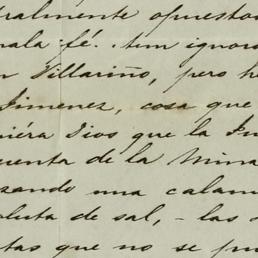 ralmente opuesto
mala fé. tan ignor
n Villariño, pero h
Jimenez, cosa que
niéra Dios que la Ju
uenta de la Mina
zando una calam
oluta de sal, - las
tas que no se pu